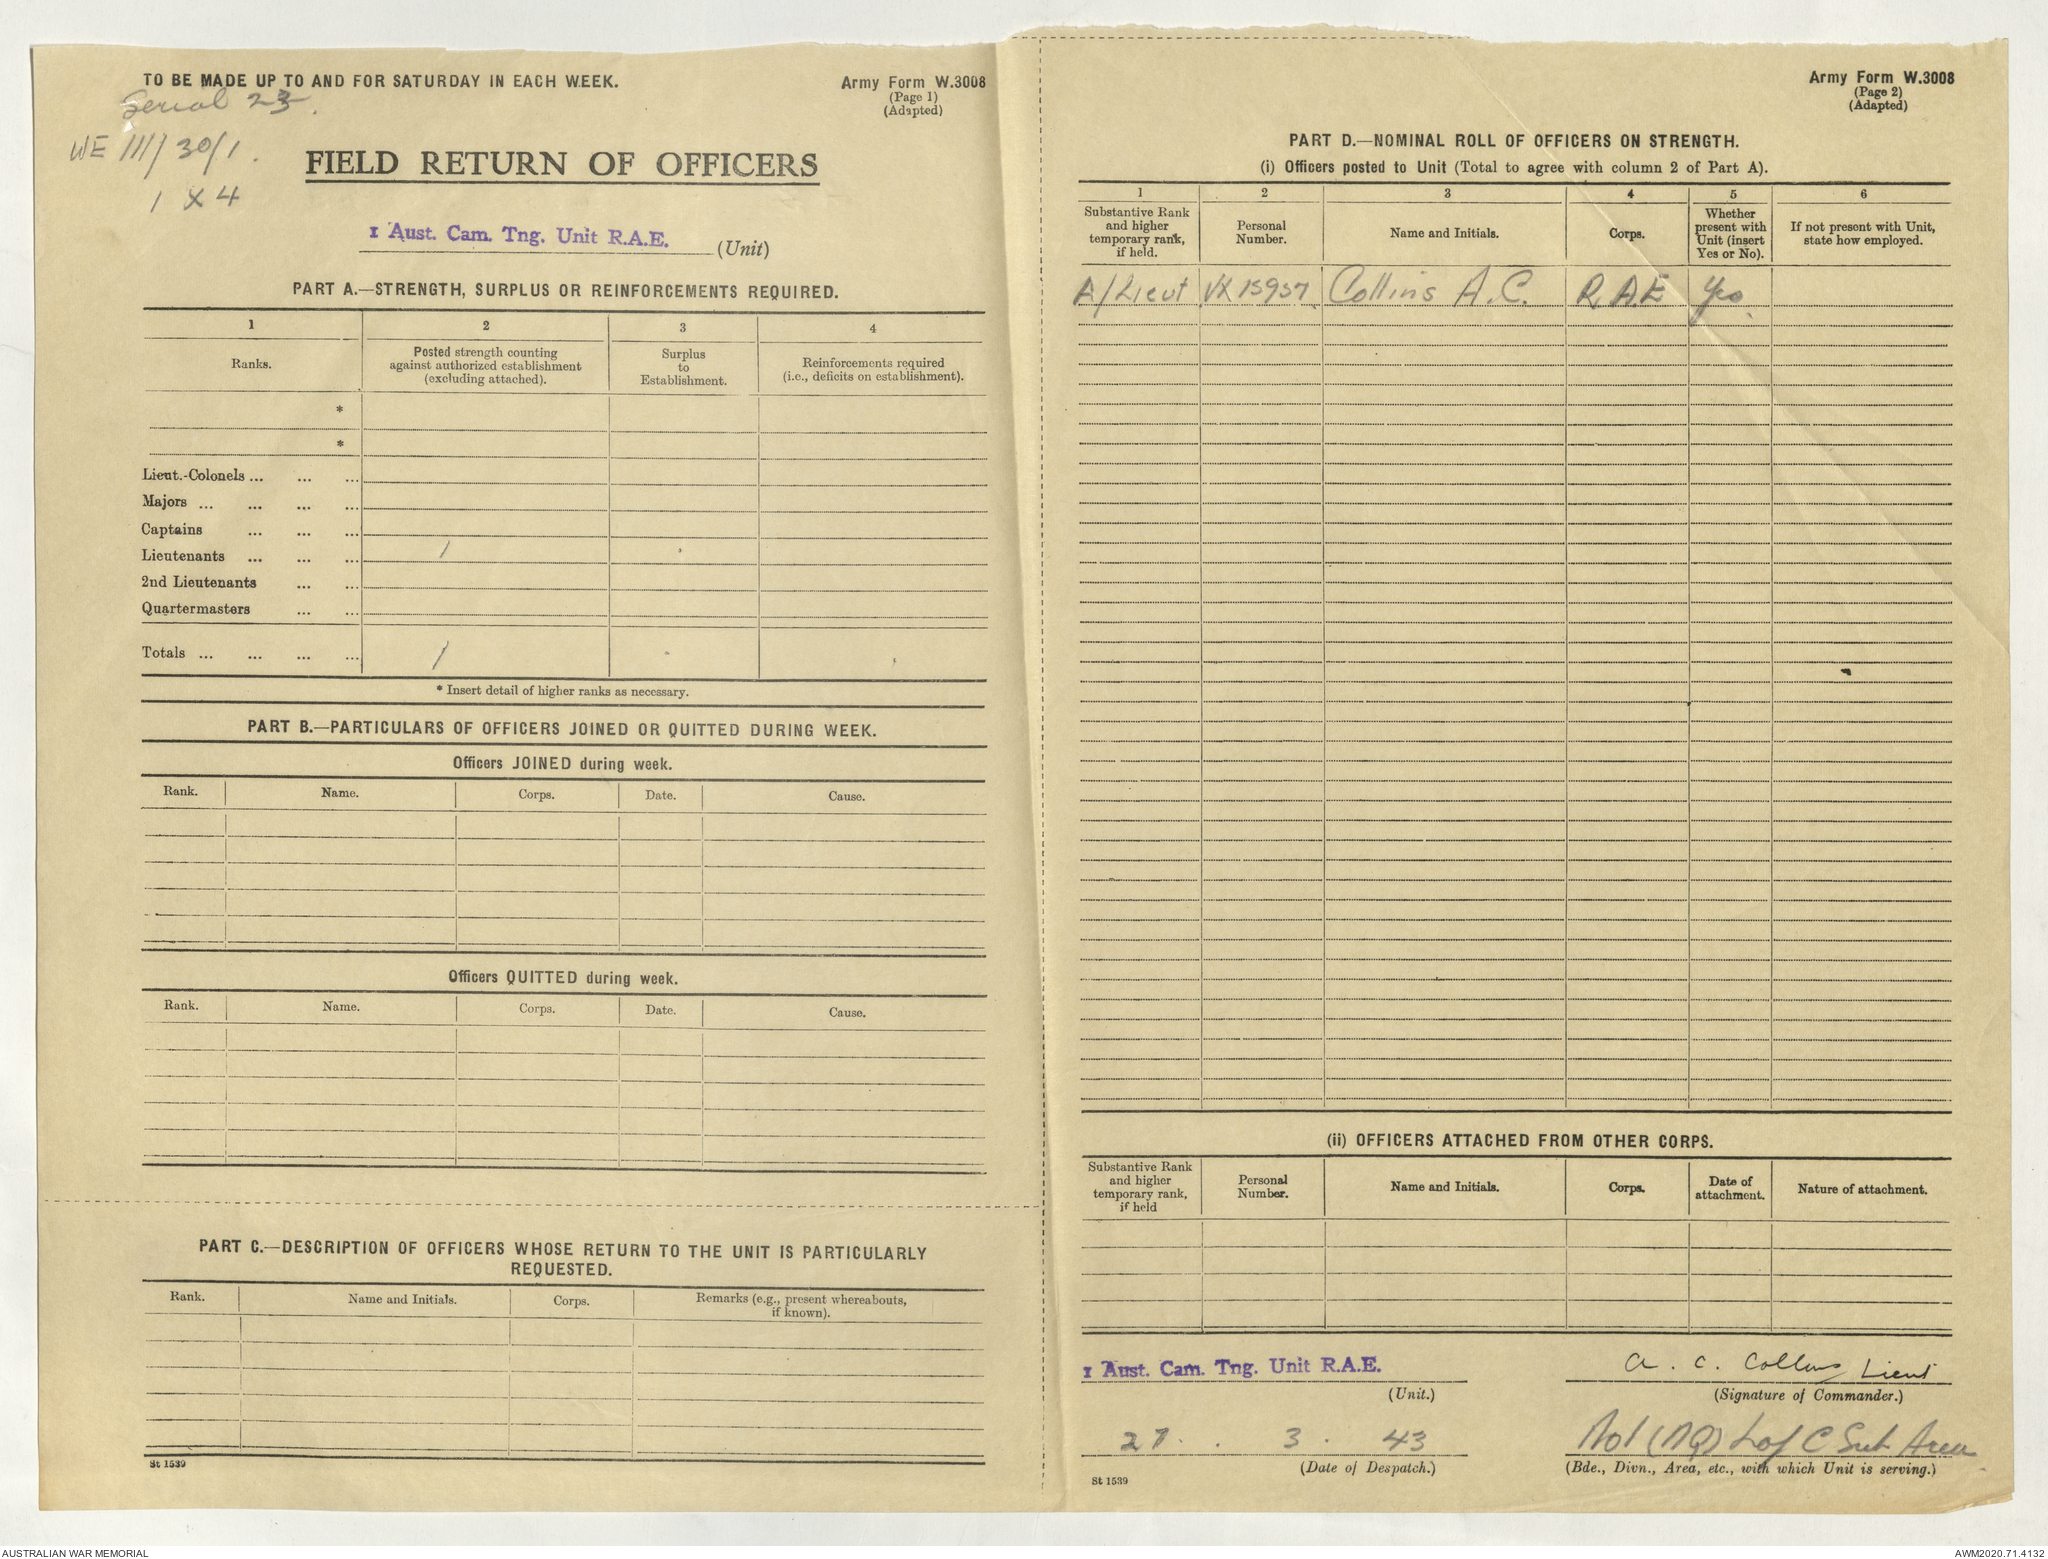 TO BE MADE UP TO AND FOR SATURDAY IN EACH WEEK.
Army Form W.3008
(Page 1)
(Adapted)
Serial 23.
WE III/30/1.
1 X 4
FIELD RETURN OF OFFICERS
1 Aust. Cam. Tng. Unit R.A.E. (Unit)
PART A.—STRENGTH, SURPLUS OR REINFORCEMENTS REQUIRED.
1 2 3 4
Ranks.
Posted strength counting
against authorized establishment
(excluding attached).
Surplus
to
Establishment.
Reinforcements required
(i.e., deficits on establishment).
*
*
Lieut.-Colonels ... ... ...
Majors ... ... ... ...
Captains ... ... ...
Lieutenants ... ... ... 1
2nd Lieutenants ... ...
Quartermasters ... ...
Totals ... ... ... ... 1
* Insert detail of higher ranks as necessary.
PART B.—PARTICULARS OF OFFICERS JOINED OR QUITTED DURING WEEK.
Officers JOINED during week.
Rank. Name. Corps. Date. Cause.
Officers QUITTED during week.
Rank. Name. Corps. Date. Cause.
PART C.—DESCRIPTION OF OFFICERS WHOSE RETURN TO THE UNIT IS PARTICULARLY
REQUESTED.
Rank. Name and Initials. Corps. Remarks (e.g., present whereabouts,
if known).
St 1539
Army Form W.3008
(Page 2)
(Adapted)
PART D.—NOMINAL ROLL OF OFFICERS ON STRENGTH.
(i) Officers posted to Unit (Total to agree with column 2 of Part A).
1 2 3 4 5 6
Substantive Rank
and higher
temporary rank,
if held.
Personal
Number.
Name and Initials.
Corps.
Whether
present with
Unit (insert
Yes or No).
If not present with Unit,
state how employed.
A/Lieut VX15957 Collins A.C. R.A.E Yes.
(ii) OFFICERS ATTACHED FROM OTHER CORPS.
Substantive Rank
and higher
temporary rank,
if held
Personal
Number.
Name and Initials.
Corps.
Date of
attachment.
Nature of attachment.
1 Aust. Cam. Tng. Unit R.A.E.
(Unit.)
A. C. Collins Lieut
(Signature of Commander.)
27. . 3 . 43
(Date of Despatch.)
L of C Sub Area
(Bde., Divn., Area, etc., with which Unit is serving.)
St 1539
AUSTRALIAN WAR MEMORIAL
AWM2020.71.4132